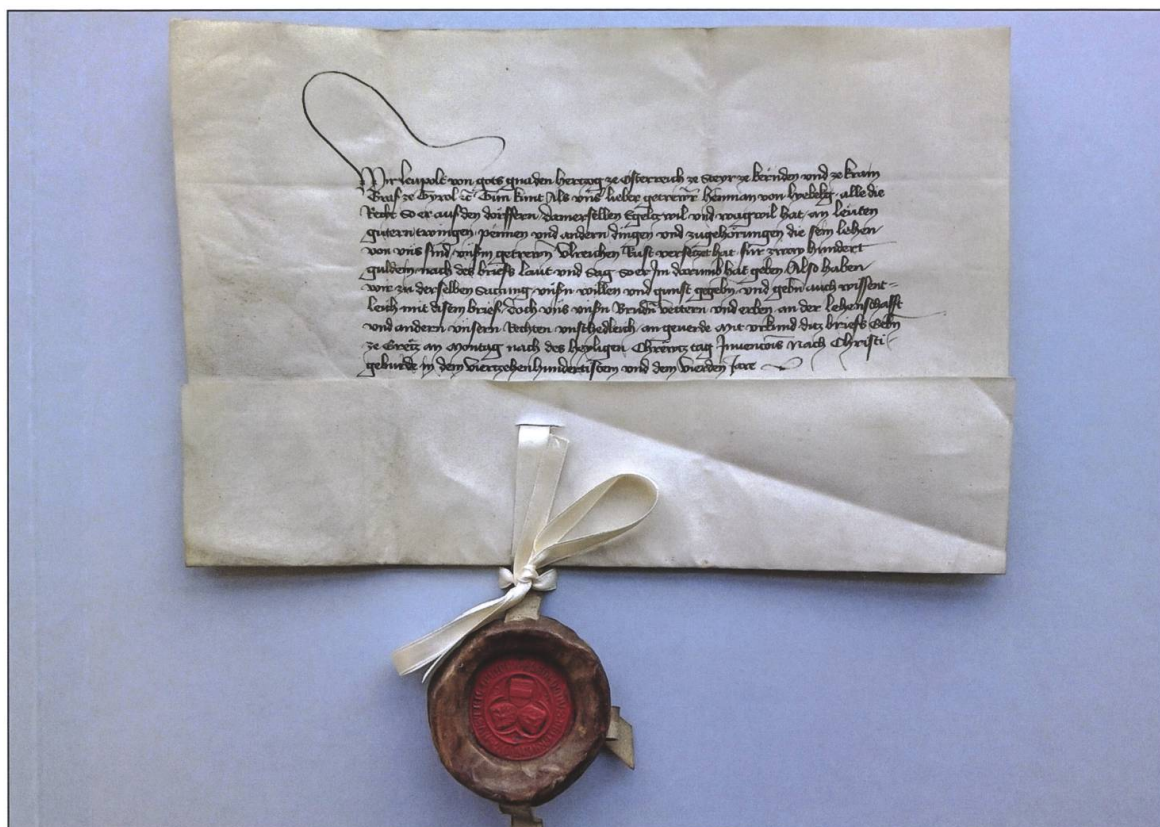 Wir leupolt von gots gnaden hertzog ze Osterreich ze Steyr ze kernden und ze krain
Graf ze Tyrol etc Tun kunt Als uns lieber getrewr henman von lyebekg alle die
Recht so er auf den dörffern damerssellen Egeltzwil und wagwil hat an leuten
gütern twingen pennen und andern dingen und zugehörungen die sein lehen
von uns sind unserm getrewn Ulreichen Rust versetzet hat für zway hundert
guldein nach des briefs laut und sag so er Im darumb hat geben Also haben
wir zu derselben satzung unsern willen und gunst gegeben und geben auch wissent-
leich mit disem brief doch uns unsern Brüdern vettern und erben an der lehenschafft
und andern unsern Rechten unschedleich an geverde Mit urkund ditz briefs Geben
ze Gretz an Montag nach des heyligen Chrewtz tag Invencionis Nach Christi
geburde in dem viertzehenhundertistem und dem vierden Jare